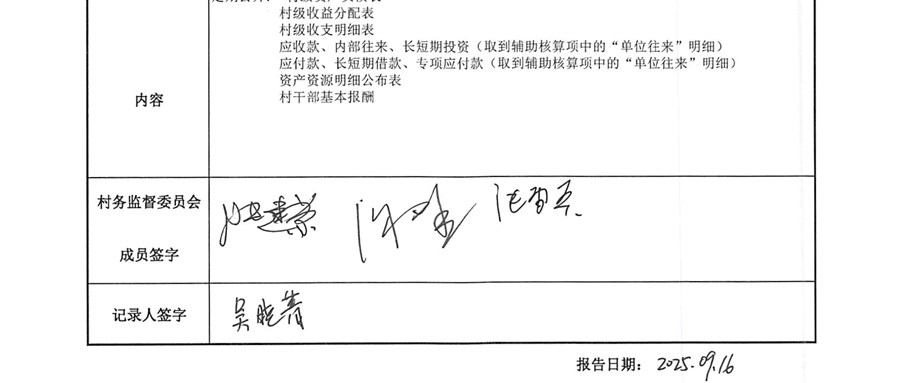 村级收益分配表
村级收支明细表
应收款、内部往来、长短期投资（取到辅助核算项中的“单位往来”明细）
应付款、长短期借款、专项应付款（取到辅助核算项中的“单位往来”明细）
资产资源明细公布表
村干部基本报酬
内容
村务监督委员会
成员签字
记录人签字
吴晓菁
报告日期： 2025.09.16